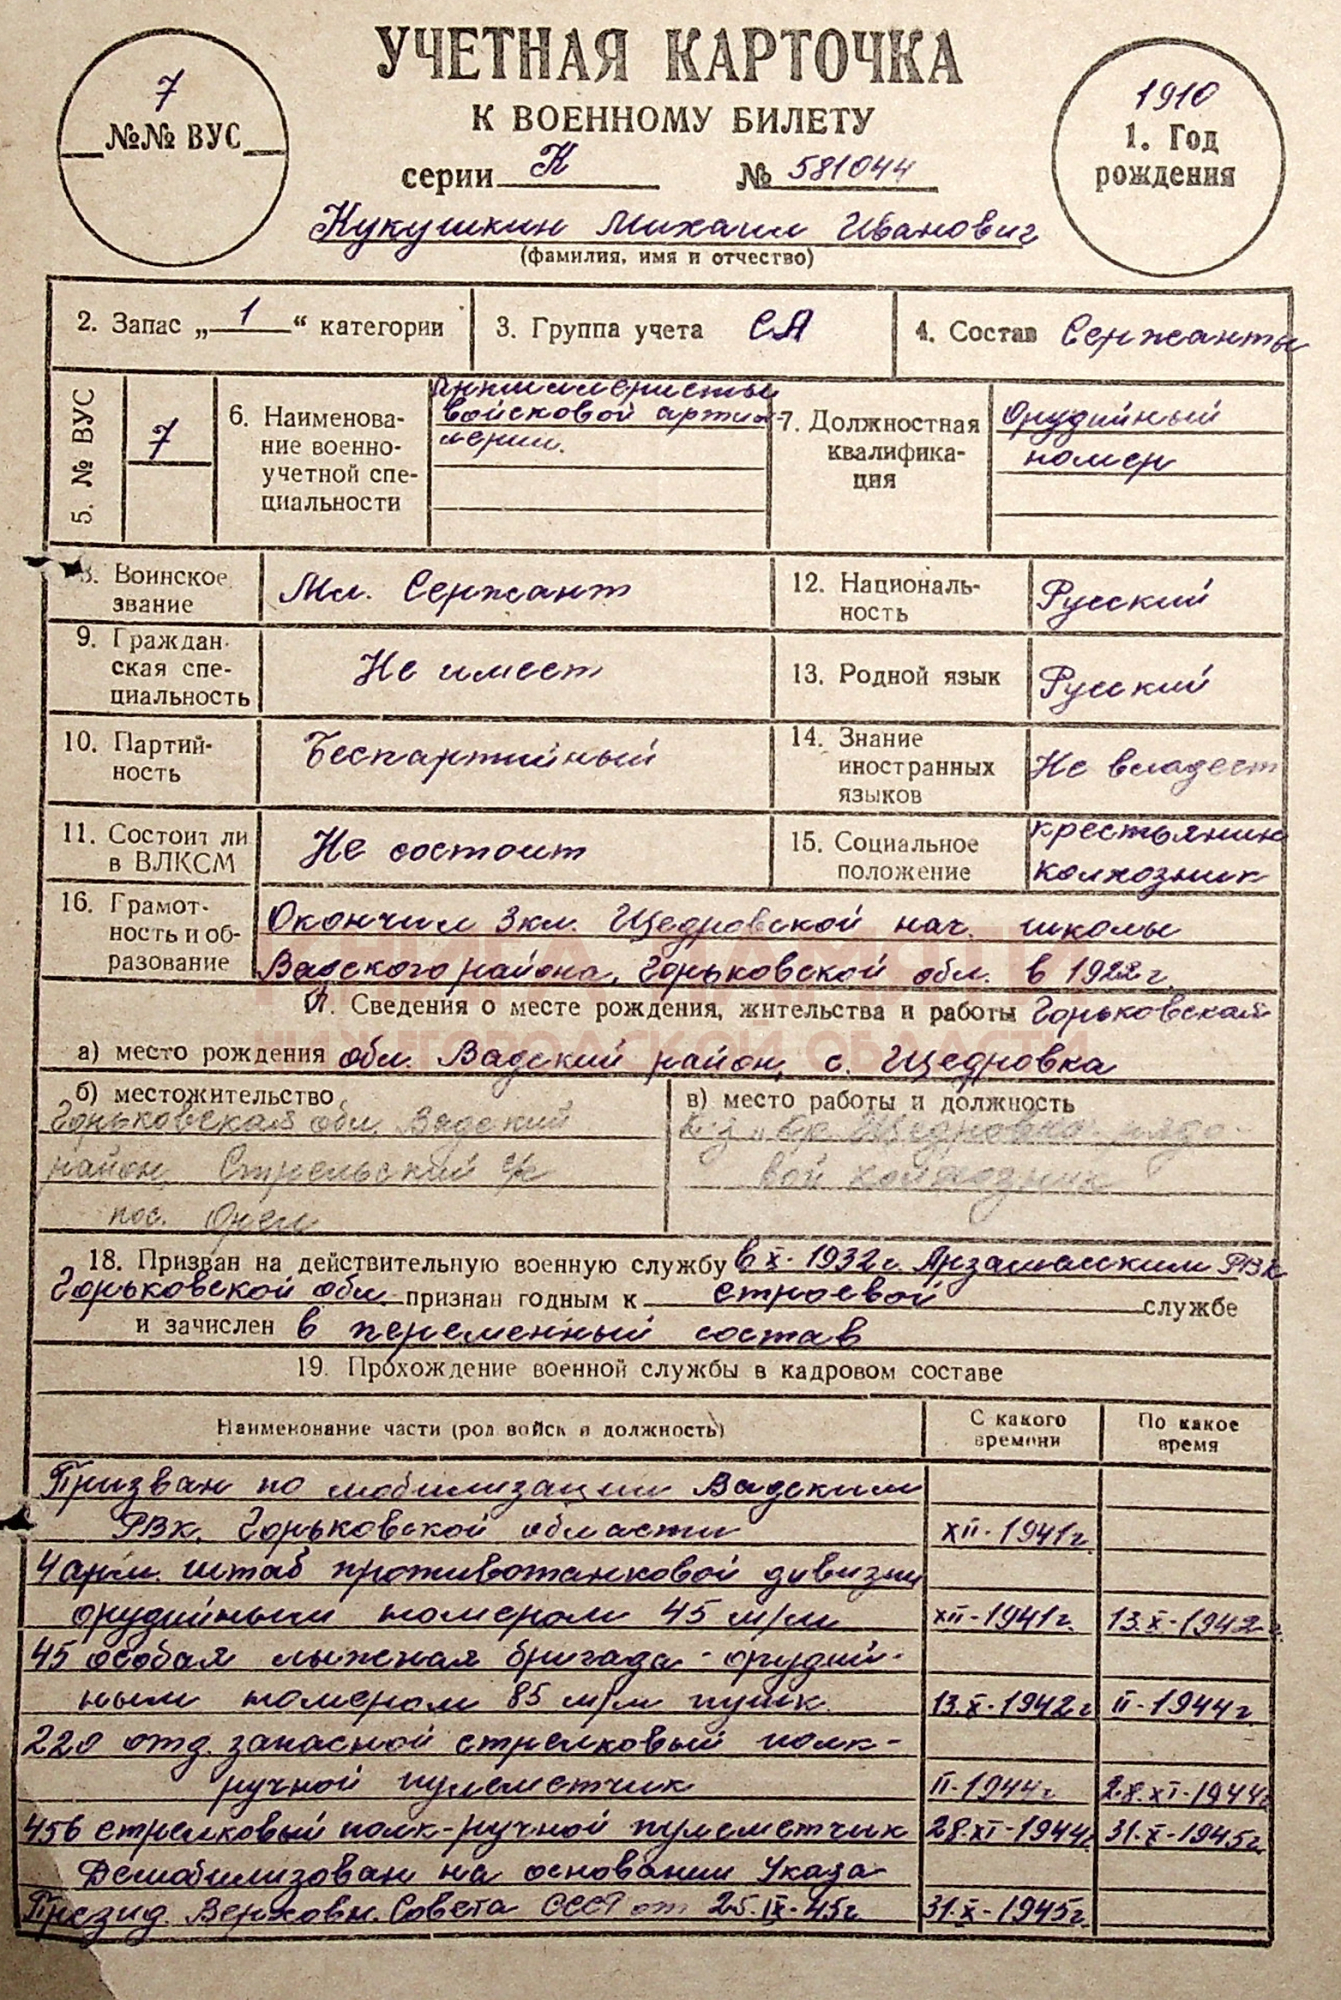 УЧЕТНАЯ КАРТОЧКА
К ВОЕННОМУ БИЛЕТУ
7
№№ ВУС
серии К № 581044
1910
1. Год
рождения
Кукушкин Михаил Иванович
(фамилия, имя и отчество)
2. Запас „1“ категории
3. Группа учета СА
4. Состав Сержанты
5. № ВУС
7
6. Наименова-
ние военно-
учетной спе-
циальности
войсковой артил-
лерии.
7. Должностная
квалифика-
ция
Орудийный
номер
8. Воинское
звание
Мл. Сержант
12. Националь-
ность
Русский
9. Граждан-
ская спе-
циальность
Не имеет
13. Родной язык
Русский
10. Партий-
ность
Беспартийный
14. Знание
иностранных
языков
Не владеет
11. Состоит ли
в ВЛКСМ
Не состоит
15. Социальное
положение
крестьянин
колхозник
16. Грамот-
ность и об-
разование
Окончил 3 кл. Щедровской нач. школы
Вадского района, Горьковской обл. в 1922 г.
КНИГА ПАМЯТИ
НИЖЕГОРОДСКОЙ ОБЛАСТИ
17. Сведения о месте рождения, жительства и работы Горьковская
а) место рождения обл. Вадский район, с. Щедровка
б) местожительство
Горьковская обл. Вадский
район, Стрельский с/с
пос.
в) место работы и должность
к-з Щедровка рядо-
вой колхозник
18. Призван на действительную военную службу в X-1932 г. Арзамасским РВК
Горьковской обл. признан годным к строевой службе
и зачислен в переменный состав
19. Прохождение военной службы в кадровом составе
Наименование части (род войск и должность)
С какого
времени
По какое
время
Призван по мобилизации Вадским
РВК, Горьковской области XII-1941г.
4 арм. штаб противотанковой дивизии
орудийным номером 45 м/м XII-1941г. 13.X-1942г.
45 особая лыжная бригада - орудий-
ным номером 85 м/м пушк. 13.X-1942г II-1944г.
220 отд. запасной стрелковый полк-
ручной пулеметчик II-1944г 28.XI-1944г
456 стрелковый полк-ручной пулеметчик 28.XI-1944г. 31.X-1945г.
Демобилизован на основании Указа
Презид. Верховн. Совета СССР от 25.IX-45г. 31.X-1945г.